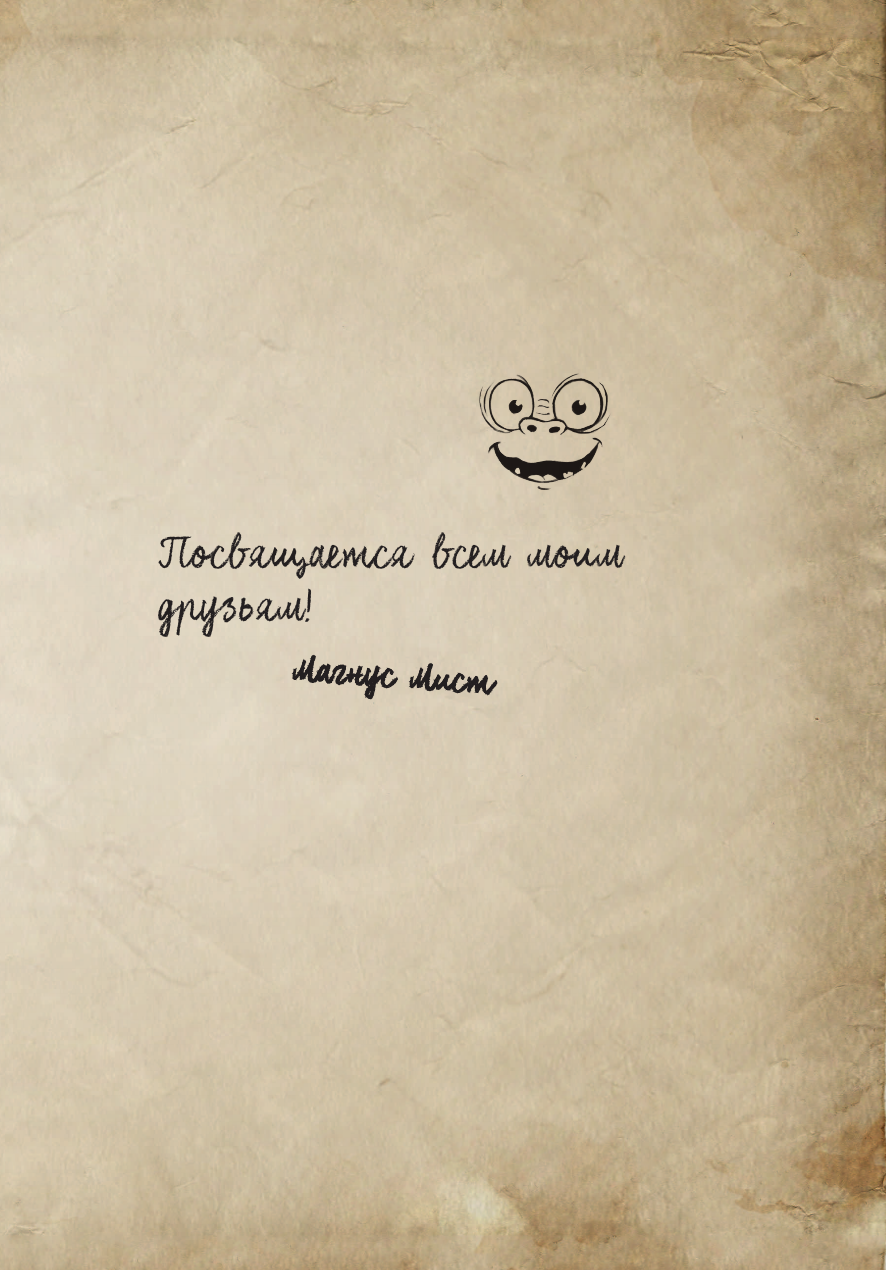 Посвящается всем моим
друзьям!
Магнус Мист